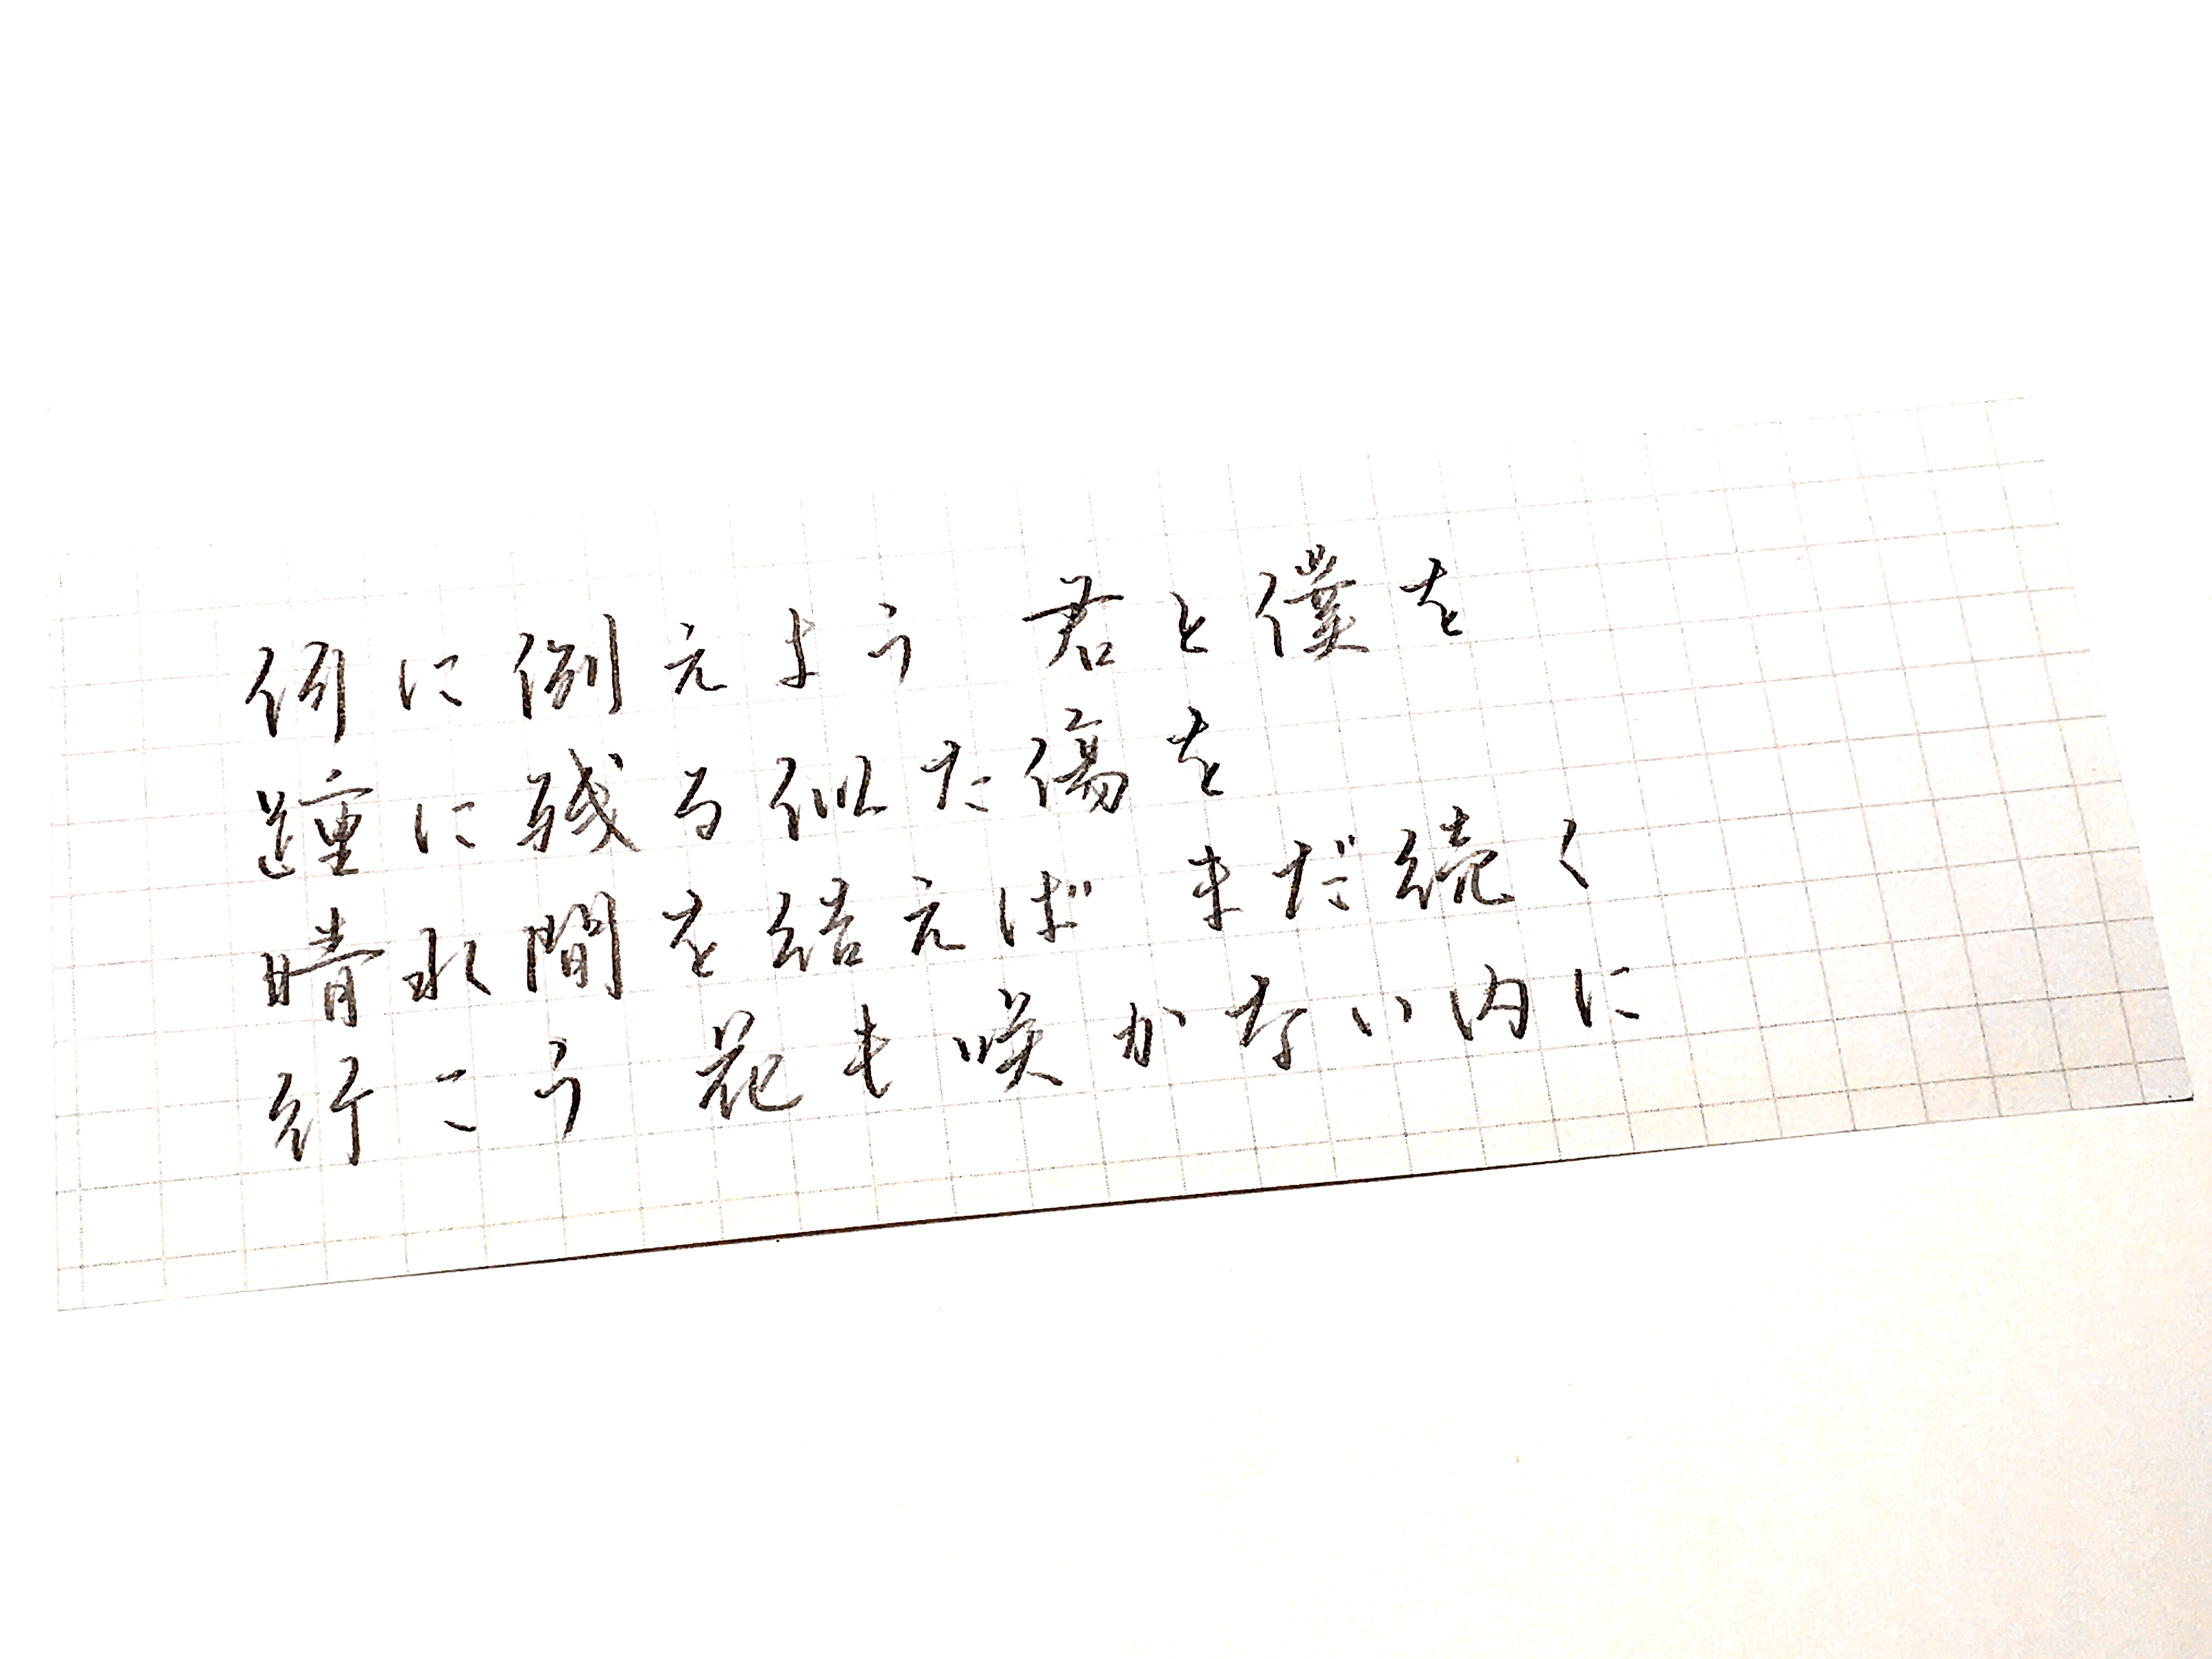 何に例えよう 君と僕を
踵に残る似た傷を
晴れ間を結えば まだ続く
行こう 花も咲かない内に